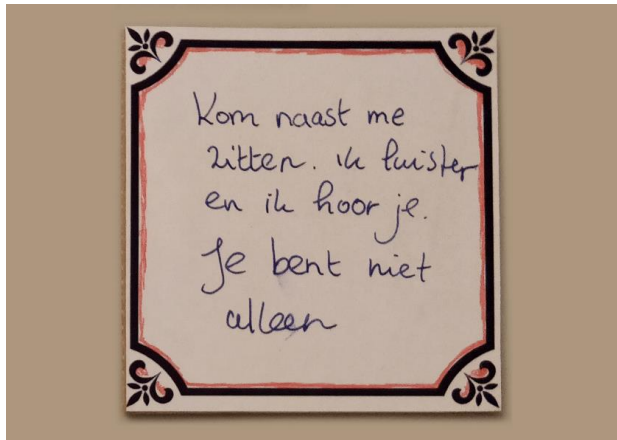 Kom naast me
zitten. ik luister
en ik hoor je.
Je bent niet
alleen